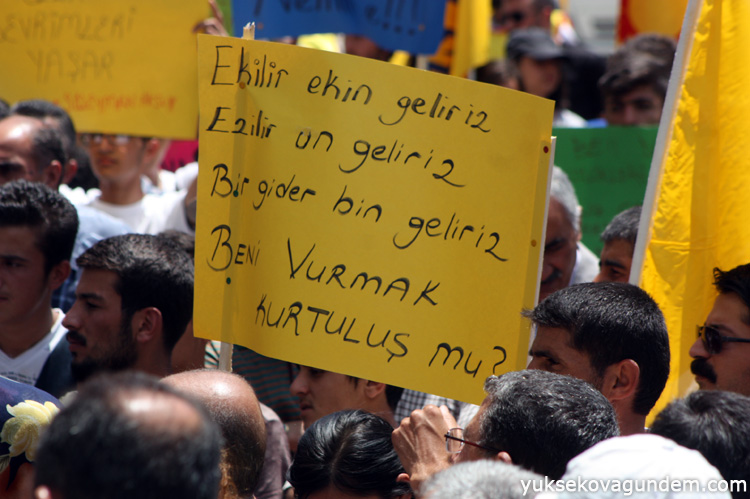 EVRİMLERİ
YAŞAR
Ekilir ekin geliriz
Ezilir un geliriz
Bir gider bin geliriz
Beni VURMAK
KURTULUŞ mu?
BEN
yuksekovagundem.com